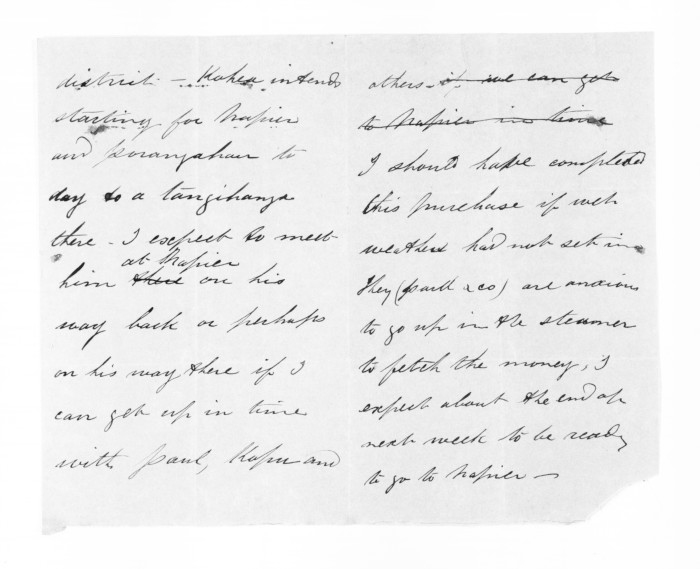 district - Kohea intends
starting for Napier
and Porangahau to
day to a tangihanga
there - I expect to meet
at Napier
him there on his
way back or perhaps
on his way there if I
can get up in time
with Paul, Kopu and
others - if we can get
to Napier in time
I should have completed
this purchase if wet
weather had not set in
They (Paul & co) are anxious
to go up in the steamer
to fetch the money, I
expect about the end of
next week to be ready
to go to Napier -